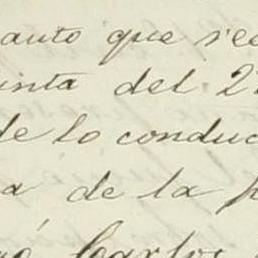 auto que se
inta del 2
de lo conduc
a de la
Carlos